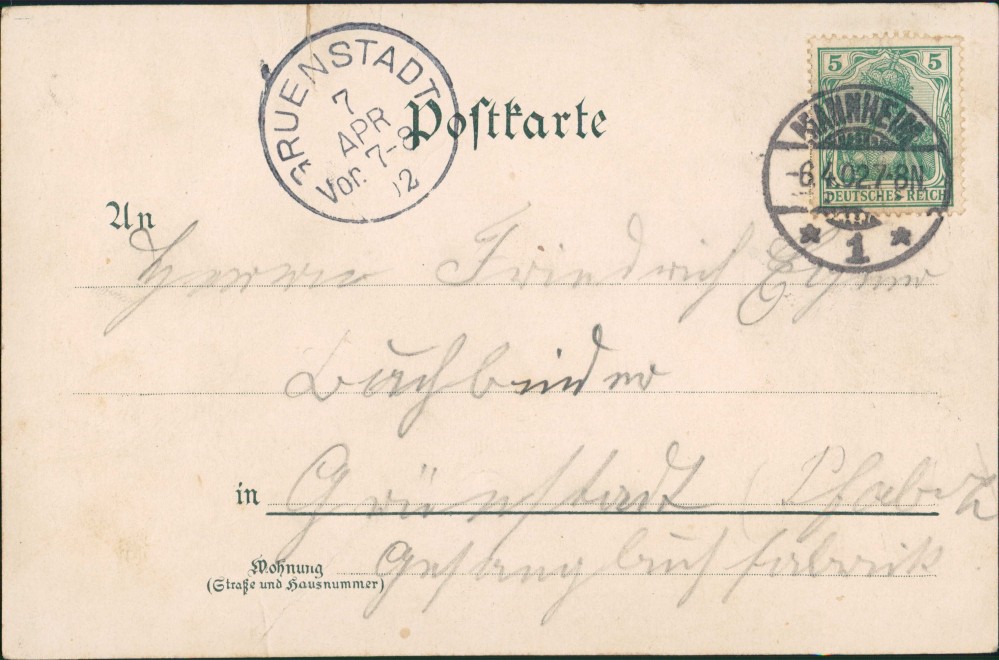 GRUENSTADT
7
APR
Vor. 7-8
02
5 5
DEUTSCHES REICH
MANNHEIM
-6.4.02.7-8N.
* 1 *
Postkarte
An
Herrn Friedrich
Buchbinder
in Grünstadt (Pfalz)
Wohnung
(Straße und Hausnummer)
Gesangbuchfabrik